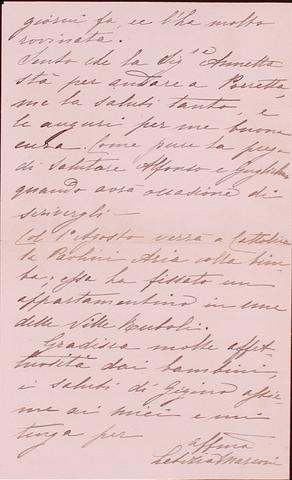 giorni fa, e l'ha molto
rovinata.
Sento che la Sig.ª Annetta
sta per andare a Porretta,
me la saluti tanto e
le auguri per me buona
cura. Come pure la prego
di salutare Alfonso e Guglielmo
quando avrà occasione di
scrivergli –
Col 1º Agosto verrà a Cattolica
la Paolini Aria colla bim
ba; essa ha fissato un
appartamentino in una
delle Ville
Gradisca molte affet
tuosità dai bambini,
i saluti di Gigino assie
me ai miei e mi
tenga per
affma
Letizia Marconi